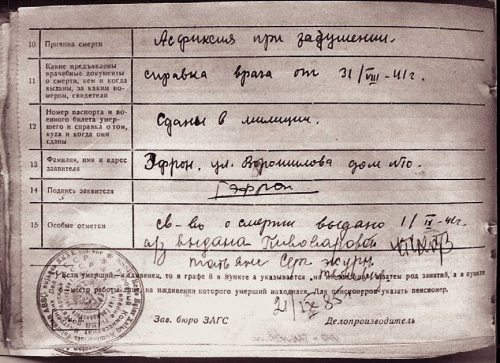 10 Причина смерти Асфиксия при задушении.
11 Какие предъявлены врачебные документы о смерти, кем и когда выданы, за каким номером, свидетели справка врача от 31/VIII-41г.
12 Номер паспорта и военного билета умершего и справка о том, куда и когда они сданы Сданы в милицию.
13 Фамилия, имя и адрес заявителя Эфрон, ул. Ворошилова дом №10.
14 Подпись заявителя ГЭфрон
15 Особые отметки св-во о смерти выдано 1/IX-41г.
выдана Пивоваровой
Татьяне
Если умерший
место работы на иждивении которого умерший находился. Для пенсионеров указать пенсионер.
21/IX 83
Зав. бюро ЗАГС Делопроизводитель